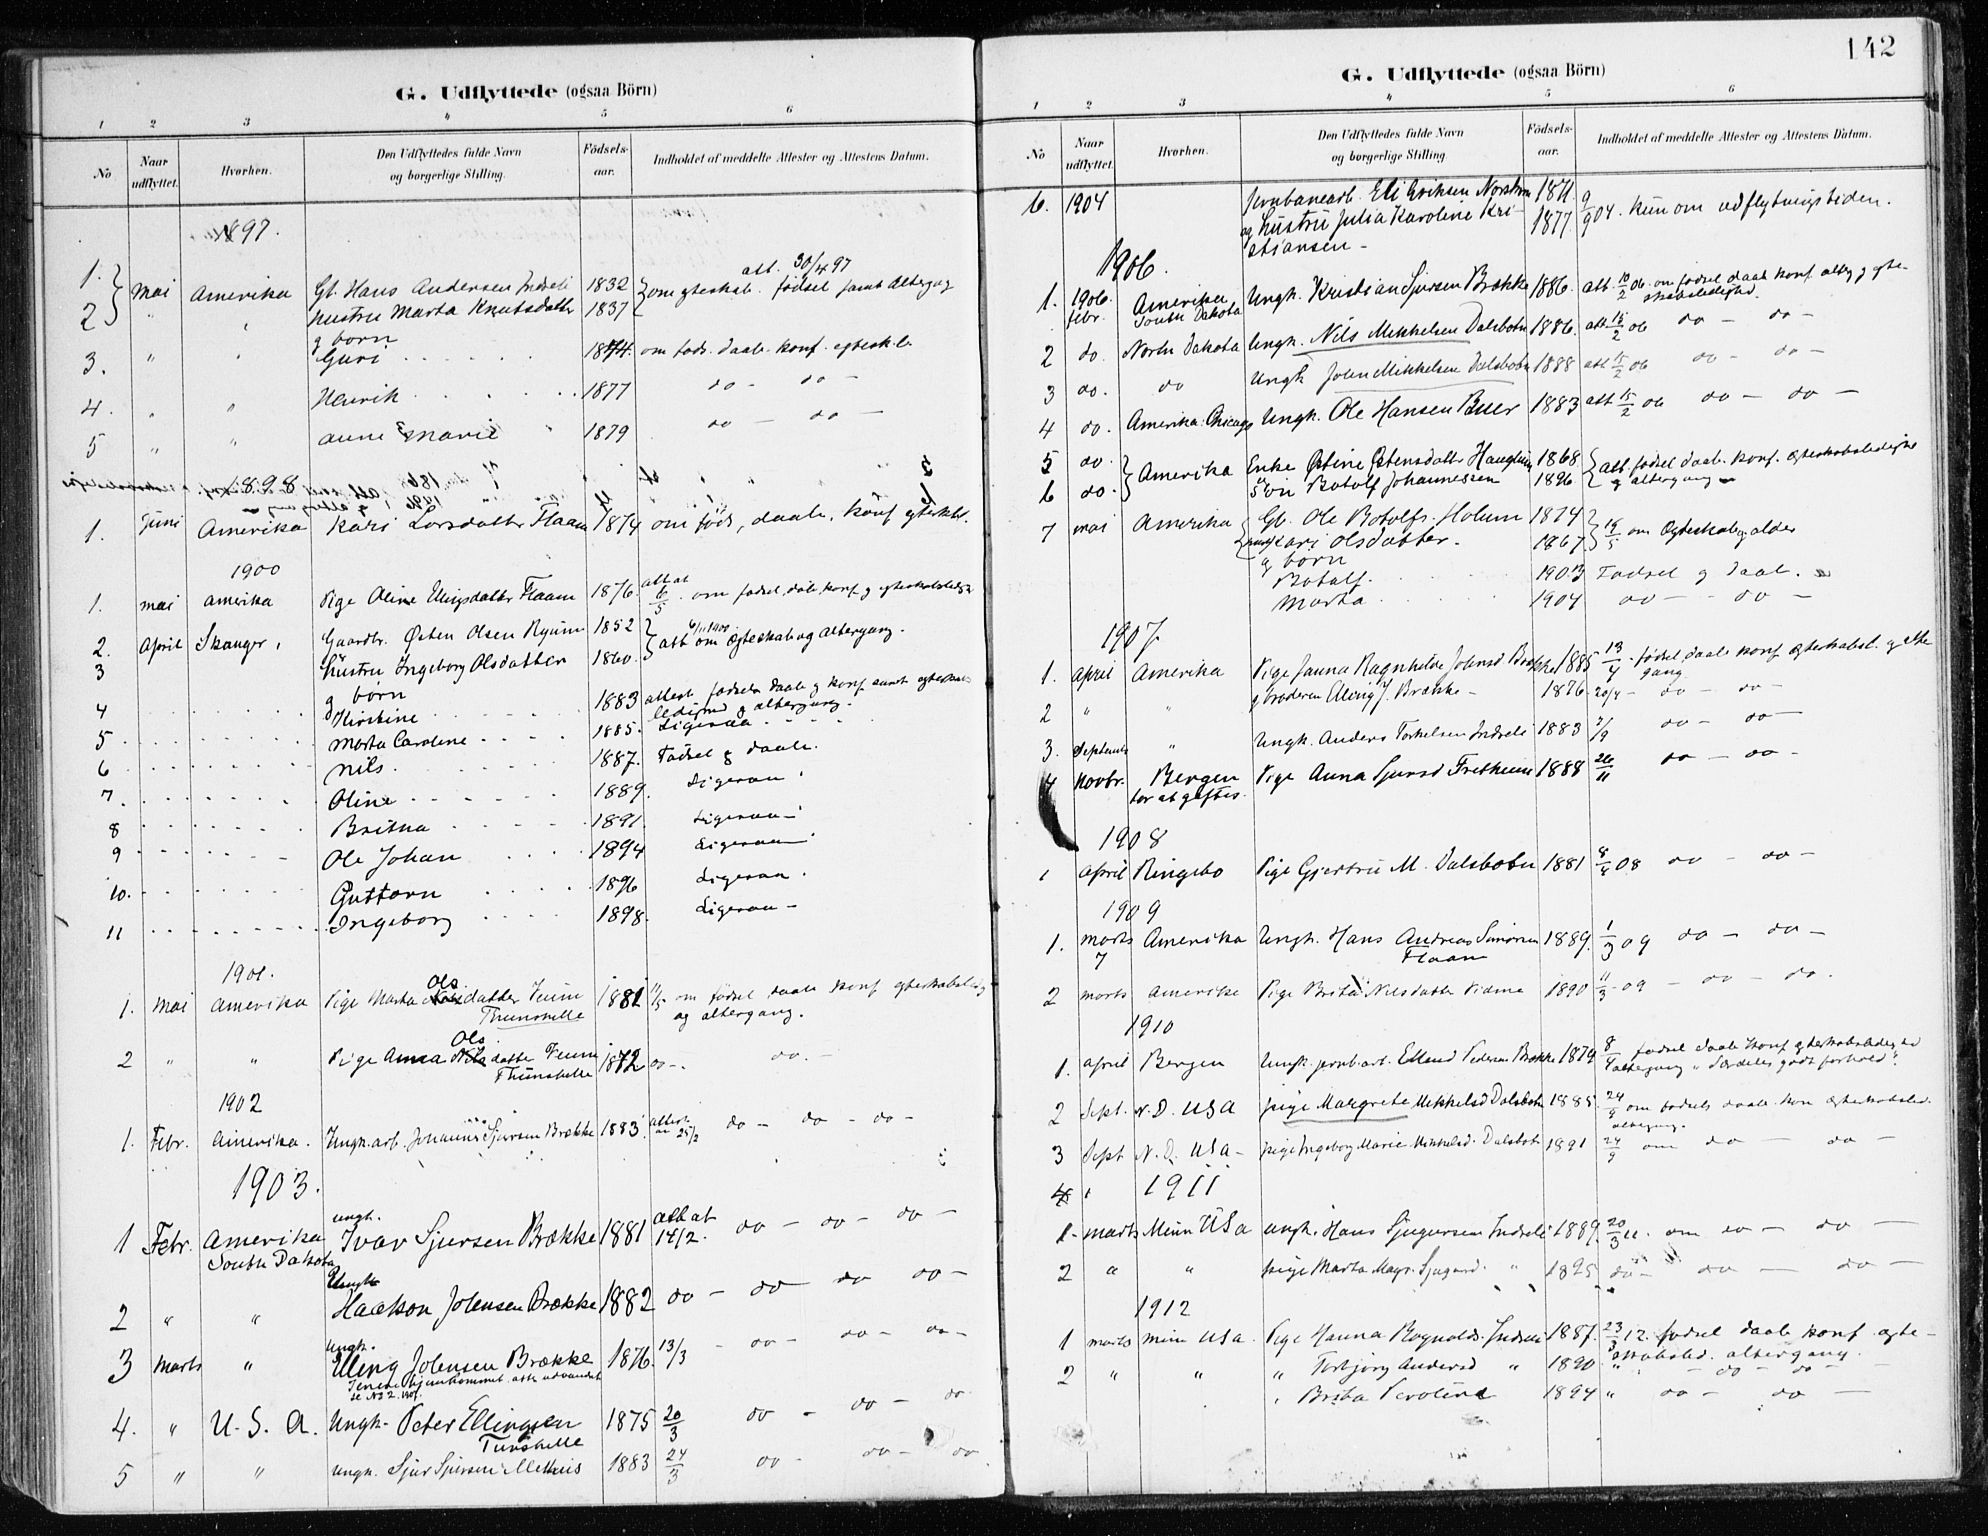 G. Udflyttede (ogsaa Börn)
1 2 3 4 5 6
No Naar udflyttet. Hvorhen. Den Udflyttedes fulde Navn og borgerlige Stilling. Födsels-aar. Indholdet af meddelte Attester og Attestens Datum.
1897.
att. 30/4 97
1. Mai Amerika Gb. Hans Andersen Indreli 1832 om egteskab. fødsel samt altergag
2 " " hustru Marta Knutsdatter 1837
g børn
3. " " Guri 1874. om føds. daab. konf. egtesk.l.
4. " " Henrik 1877 do - do -
5 " " Anne Marie 1879 do - do -
1898
1. Juni Amerika Kari Larsdatter Flaam 1874 om føds, daab, konf egteskl.
1900
1. mai Amerika Pige Oline Ellingsdatter Flaam 1876. att at 6/5 om fødsel, daab, konf g egteskabsledighed
2. April Skauger, Gaardbr. Østen Olsen Ryum 1852 att om Ægteskab og altergang.
3 hustru Ingeborg Olsdatter 1860.
g børn
4 Kirstine 1883 attest fødsels daab g konf samt egteskabs
ledighed g altergang.
5 Marta Caroline 1885. Ligesaa
6 Nils 1887. Fødsel g daab.
7. Oline 1889. Ligesaa.
8 Britha 1891. Ligesaa -
9 Ole Johan 1894 Ligesaa -
10. Guttorm 1896 Ligesaa.
11 Ingeborg 1898. Ligesaa -
1901.
Ols
1. Mai Amerika Pige Marta datter Veum 1881 11/5 om fødsel daab konf egteskabsledig
Thunshelle og altergang.
Ols
2 " " Pige Anna Nilsdatter Veum 1872 do -. do. -
Thunshelle
1902
1. Febr. Amerika. Ungk. arb. Johannes Sjursen Brække 1883. attest 25/2 do - do - do -
1903.
ungk.
1 Febr. Amerika Ivar Sjursen Brække 1881 att at 14/2. do - do - do -
South Dakota
Ungk
2 " " Haakon Johnsen Brække 1882 do - do do do -
Ungk.
3 Marts " Elling Johnsen Brække 1876. 13/3 - do - do - do -
Senere hjemkommet atter udvandret
se No 2. 1907.
4. " U. S. A. Ungk. Peter Ellingsen 1875 20/3 do - do - do
Tunshelle
5 " " Ungk. Sjur Sjursen Melhus 1883 24/3 do - do - do
142
G. Udflyttede (ogsaa Börn)
1 2 3 4 5 6
No Naar udflyttet. Hvorhen. Den Udflyttedes fulde Navn og borgerlige Stilling. Födsels-aar. Indholdet af meddelte Attester og Attestens Datum.
6. 1904 Jernbanearb. Eli Eriksen 1871. 9/9 04. kun om udflytningstiden.
og hustru Julia Karoline Kri- 1877
stiansen -
1906.
1. 1906. febr. Amerika South Dakota Ungk. Kristian Sjursen Brække 1886. att. 10/2 06. om fødsel daab konf. altg g egte-
skabsledighed.
2 do. North Dakota Ungk. Nils Mikkelsen Dalsbotn 1886. att 15/2 06 do - do -
3 do. do Ungk John Mikkelsen Dalsbotn 1888 att 15/2 06 do - do -
4 do. Amerika. Chicago Ungk. Ole Hansen 1883 att 15/2 06 do - do -
5 do. Amerika Enke Østine Østensdatter 1868 att fødsel daab konf. egteskabsledighed
6 do. Søn Botolf Johannessen 1896 g altergang
7 mai Amerika Gb. Ole Botolfs. Holum 1874 19/5 om Ægteskab g alder
hust Kari Olsdatter. 1867
g børn
Botolf. 1903 Fødsel g daab.
Marta 1904 do - do -
1907.
1. April Amerika Pige Janna Ragnhilde Johnsd Brække 1885 13/4 - fødsel, daab konf egteskabsl. g alter
gang
2 " " g broderen Elling J. Brække - 1876. 20/4 - do - do -
3. September " Ungk. Anders Torkelsen Indreli 1883 2/9 do - do -
4 Novbr. Bergen Pige Anna Sjursd Fretheim 1888 26/11 do - do -
for at giftes.
1908
1 April Ringebo Pige Gjertru M. Dalsbotn 1881 8/4 08 do - do -
1909
1. Marts 7 Amerika Ungk. Hans Andreas Simonsen 1889. 1/3 09 do - do -
Flaam
2 marts Amerika Pige Brita Nilsdatter 1890 11/3 - 09 - do - do.
1910
1. April Bergen Ungk. jernb. arb. Elland Pedersen Brække 1879 8/4 fødsel daab konf egteskabsledighed
altergang "Særdeles godt forhold".
2 Sept. N. D. USA pige Margrete Mikkelsd Dalsbotn 1885 24/9 om fødsels daabs kon egteskabsled.
altergang.
3 Sept N. D. USA - pige Ingeborg Marie Mikkelsd. Dalsbotn 1891 24/9 om do - do -
1911
1. marts Minn USA ungk. Hans Sjugursen Indreli 1889. 20/3 11. om do - do -
2 " " pige Marta Magr. Sjugursd. " 1895 do - do - do -
1912
1 marts Minn USA. Pige Hanna Rognalds. Indreli 1887. 23/3 12. fødsel daab konf egte-
skabsled. altergang.
2 " " " Torbjørg Andersd " 1890 " - do - do -
" Brita Caroline 1894 " do - do -